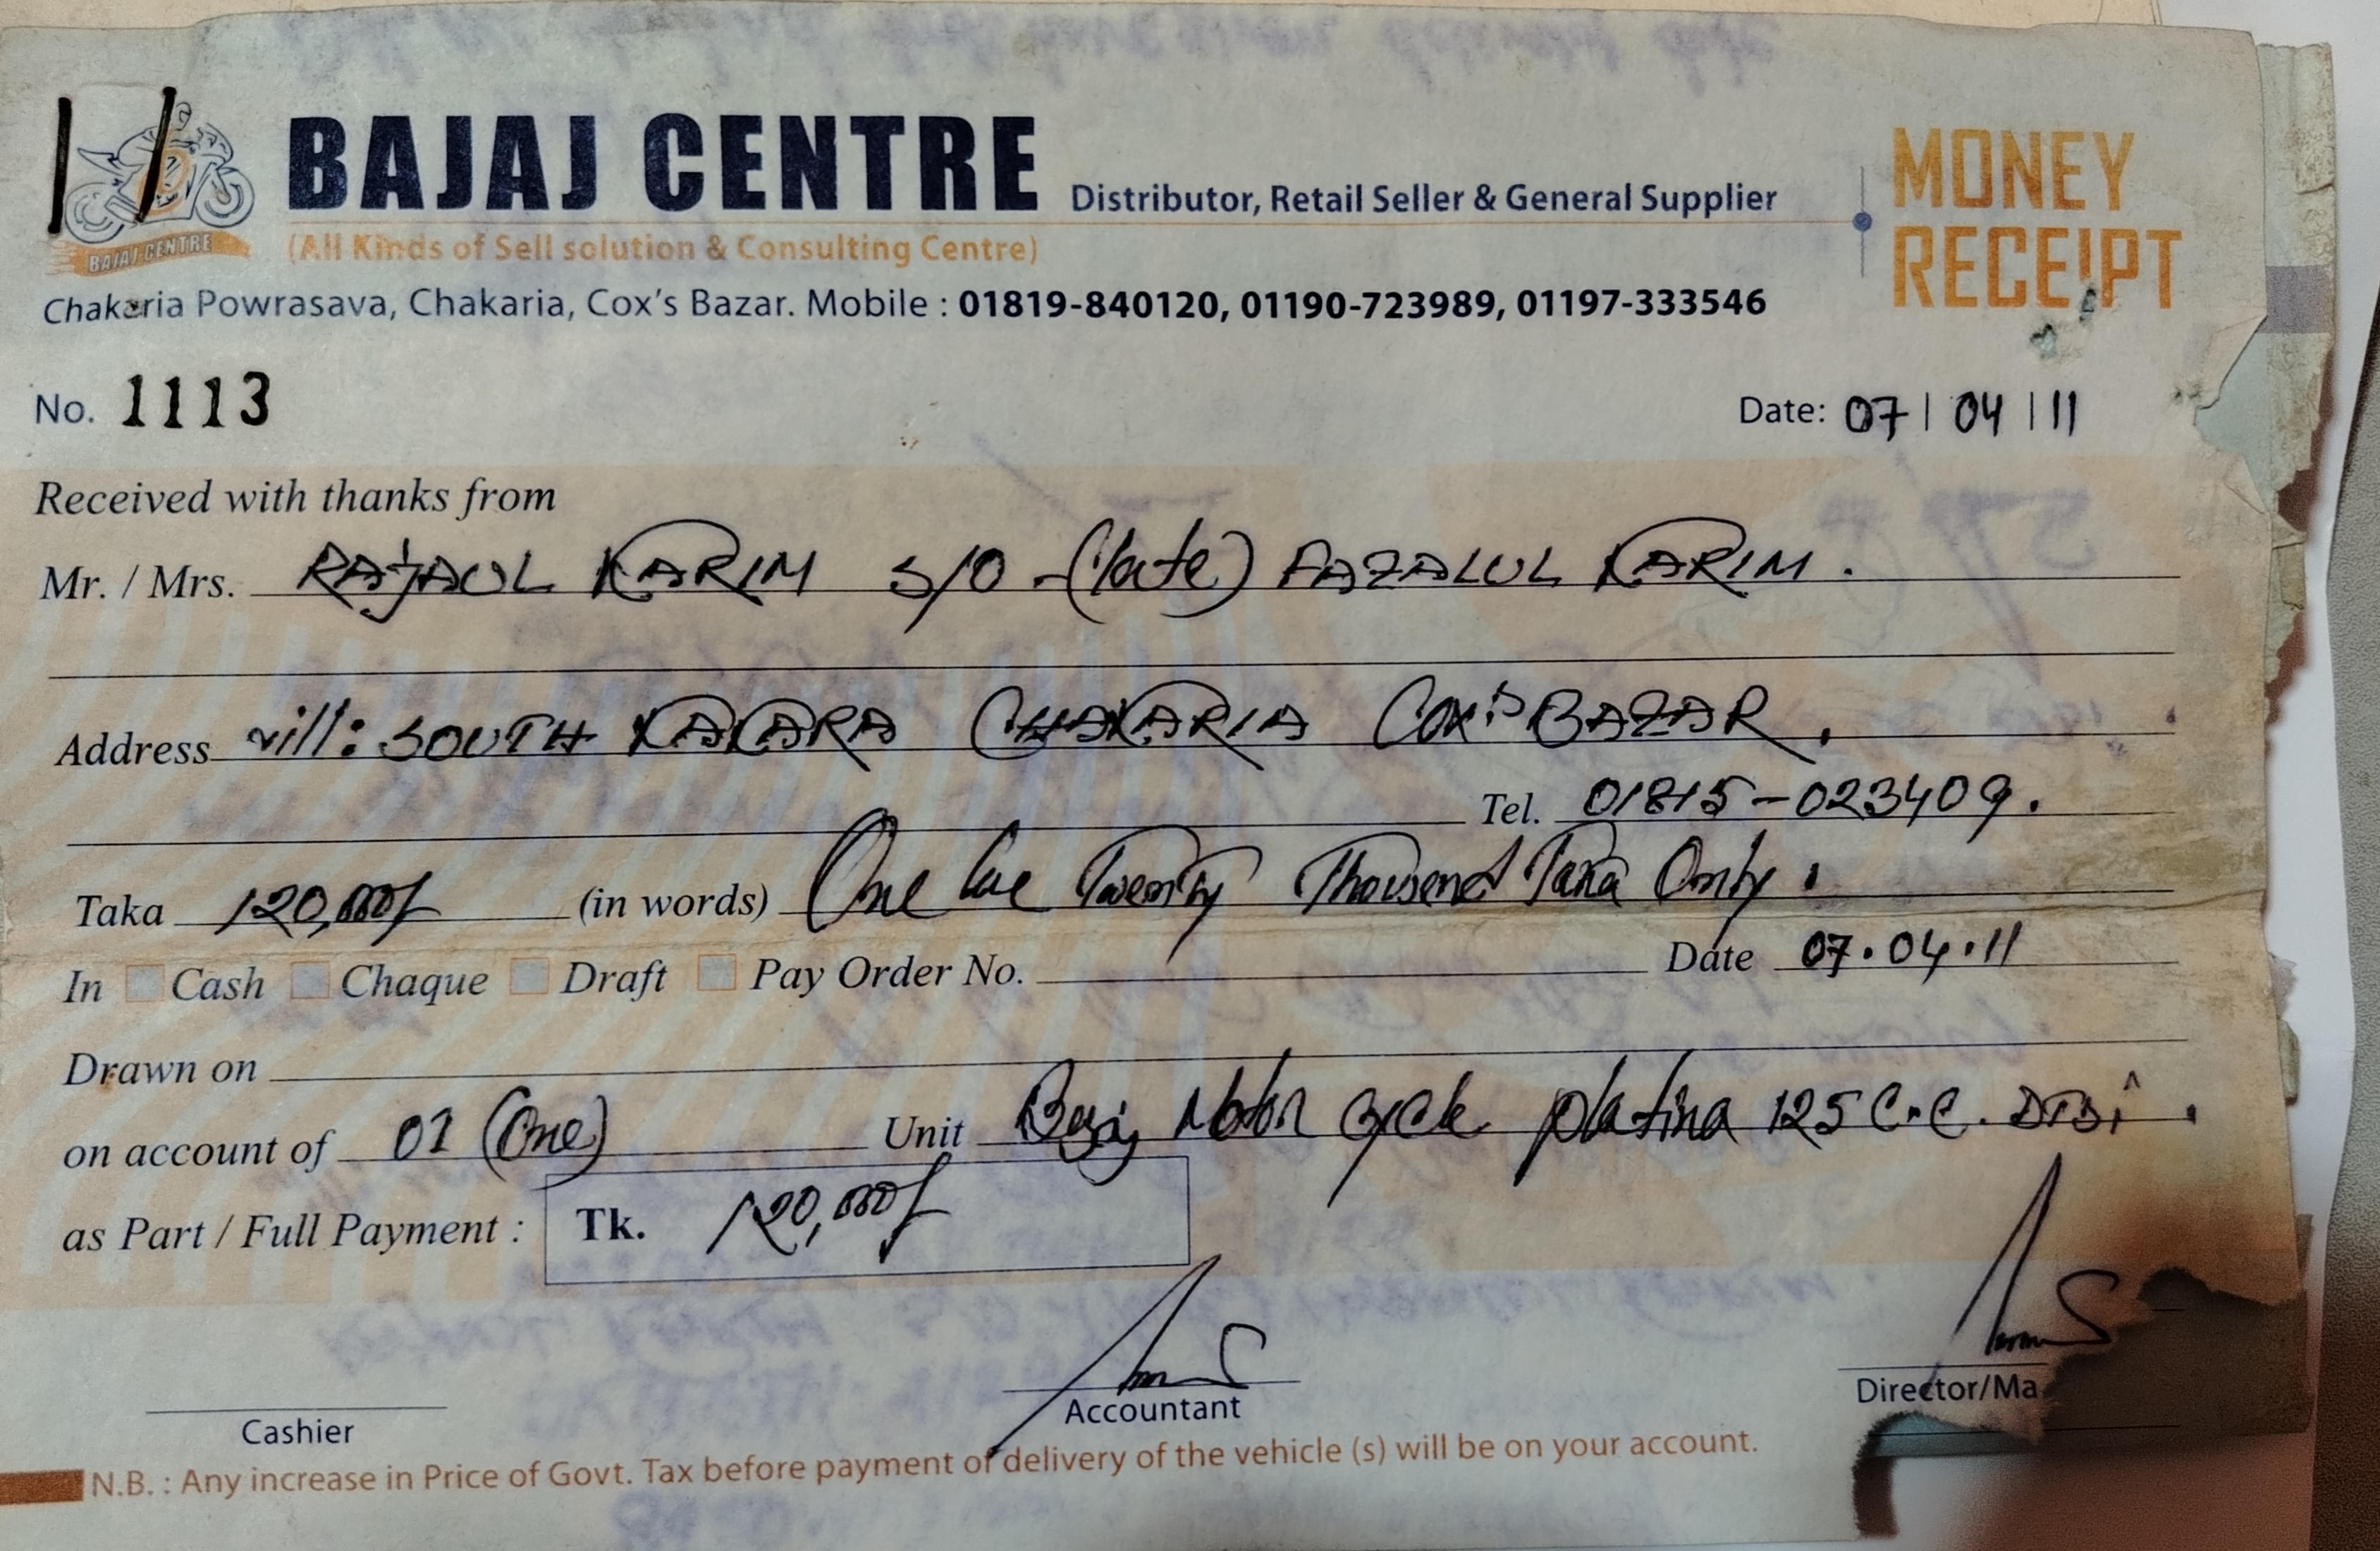 BAJAJ CENTRE
Distributor, Retail Seller & General Supplier
MONEY RECEIPT
BAJAJ CENTRE
(All Kinds of Sell solution & Consulting Centre)
Chakaria Powrasava, Chakaria, Cox's Bazar. Mobile : 01819-840120, 01190-723989, 01197-333546
No. 1113
Date: 07 | 04 | 11
Received with thanks from
Mr. / Mrs. RAJAUL KARIM S/O - (late) FAZALUL KARIM.
Address vill: SOUTH KAKARA CHAKARIA COX'S BAZAR.
Tel. 01815-023409.
Taka 120,000/- (in words) One Lac Twenty Thousend Taka Only.
In Cash Chaque Draft Pay Order No. Date 07.04.11
Drawn on
on account of 01 (One) Unit Bajaj Motor cycle platina 125 C.C. DTSi.
as Part / Full Payment : Tk. 120,000/-
Cashier
Accountant
Director/Ma
N.B. : Any increase in Price of Govt. Tax before payment of delivery of the vehicle (s) will be on your account.